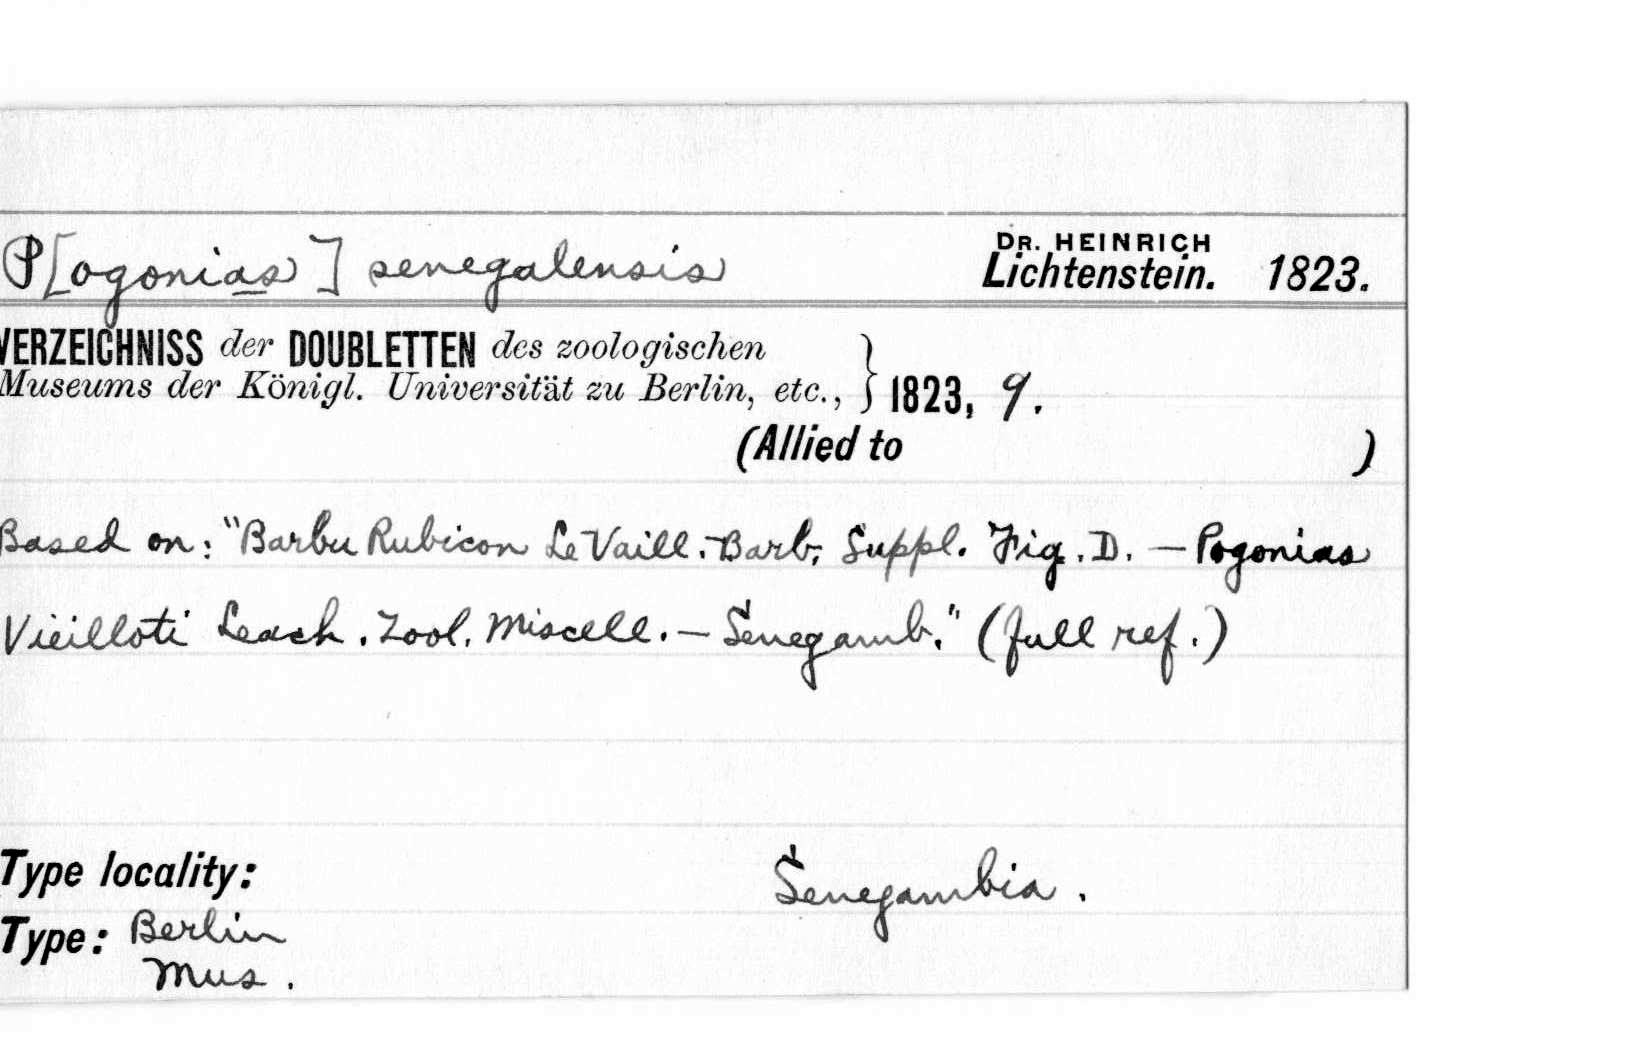 P[ogonias] senegalensis DR. HEINRICH Lichtenstein. 1823.
VERZEICHNISS der DOUBLETTEN des zoologischen
Museums der Königl. Universität zu Berlin, etc., } 1823, 9.
(Allied to )
Based on: "Barbu Rubicon Le Vaill. Barb. Suppl. Fig. D. — Pogonias
Vieilloti Leach. Zool. Miscell. — Senegamb." (full ref.)
Type locality: Senegambia.
Type: Berlin
Mus.